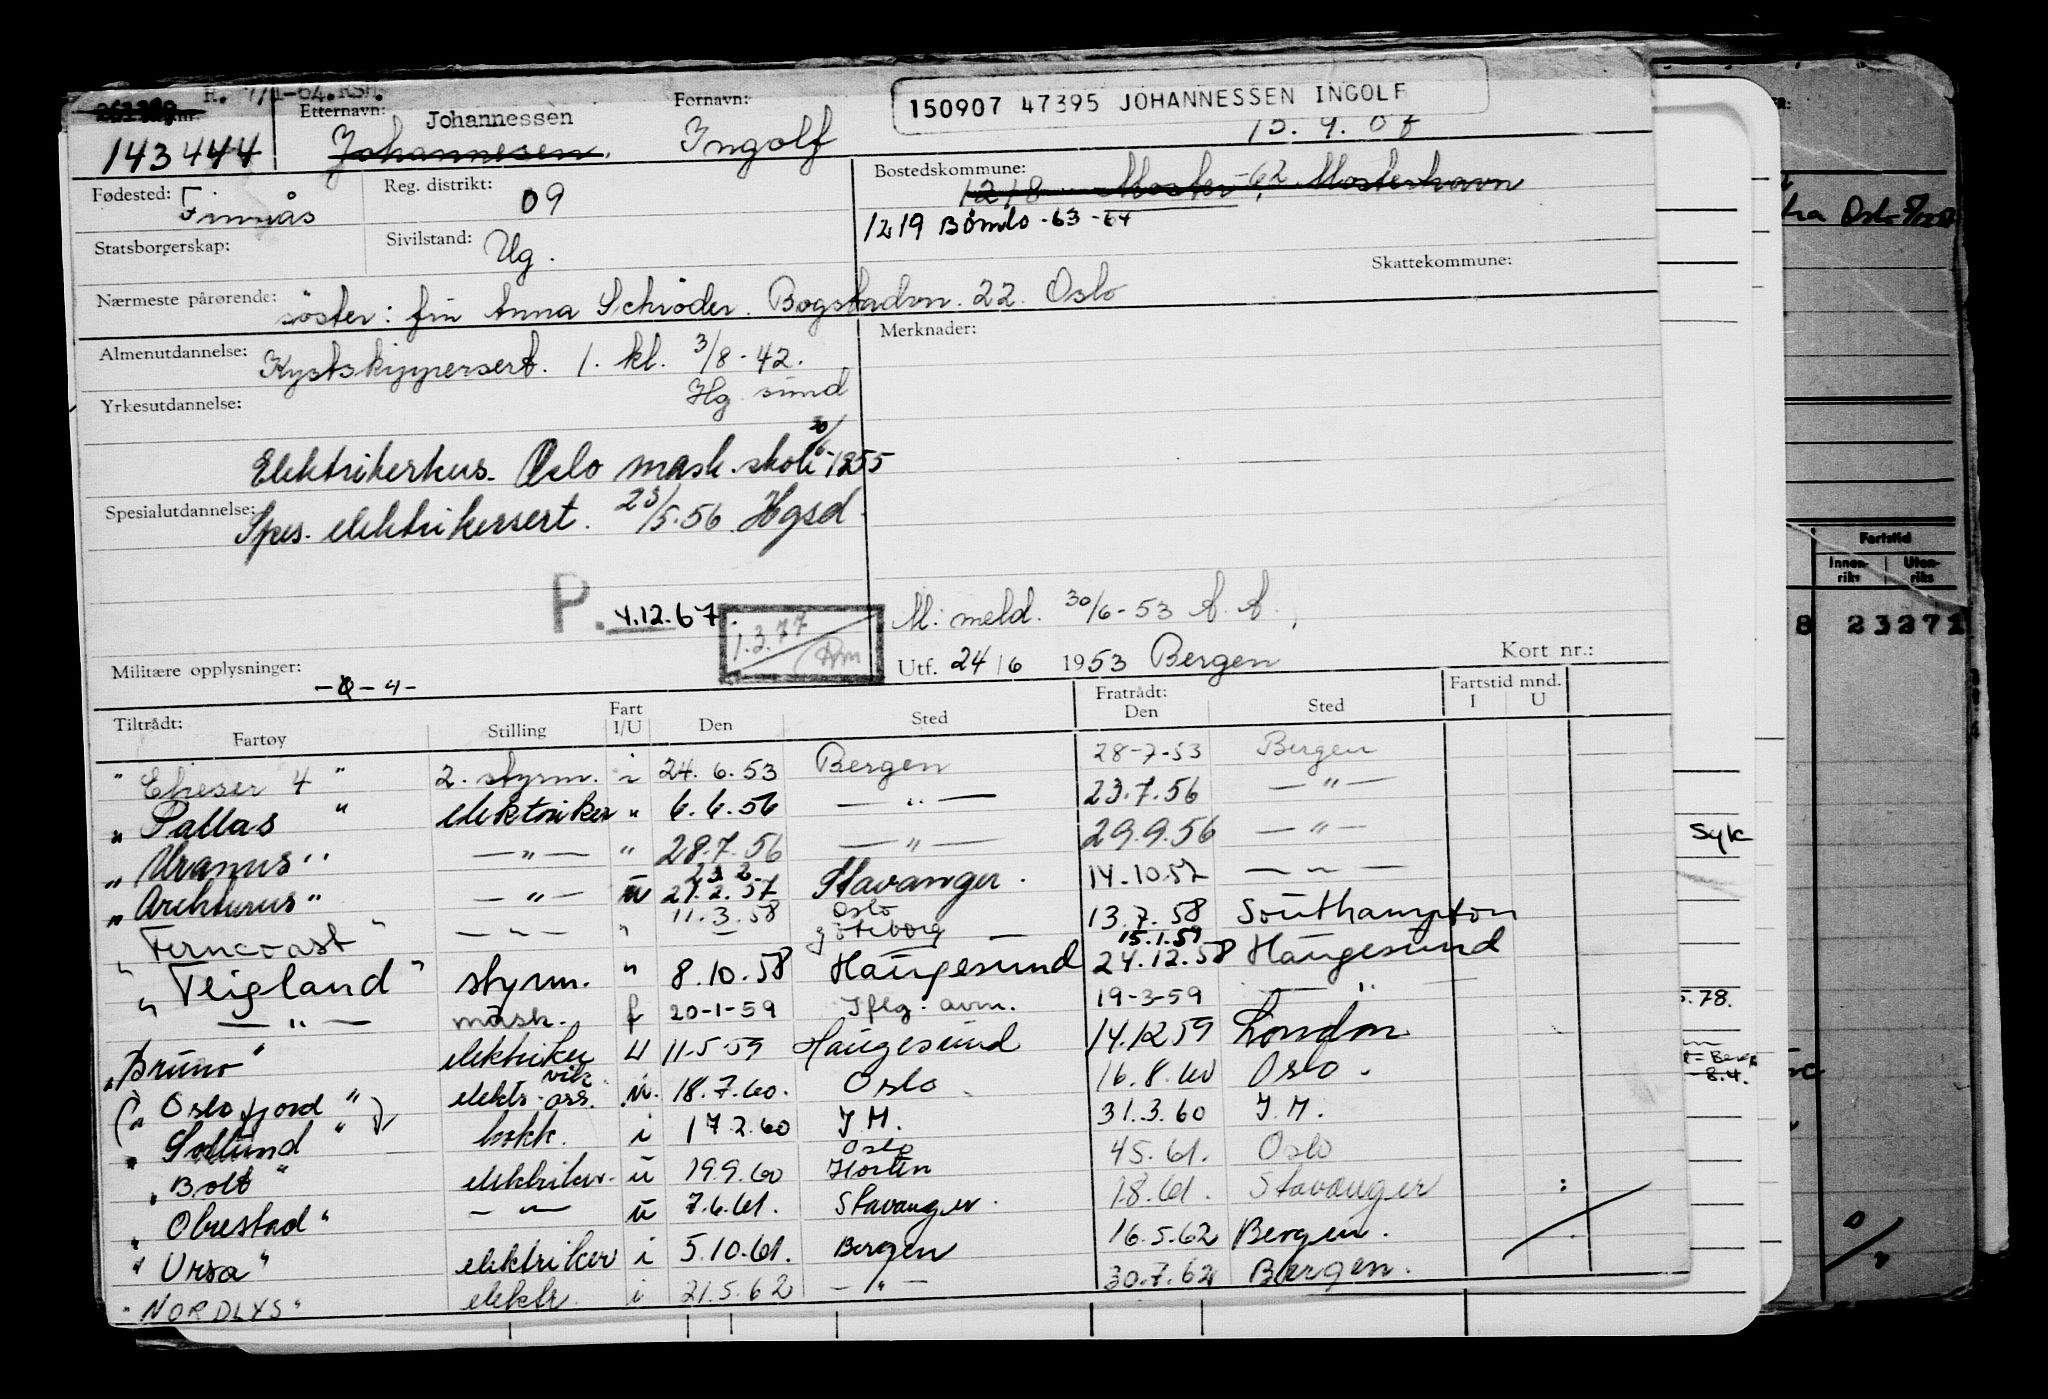 H. 7/1-64. RSH.
143444
Etternavn: Johannessen
Johannesen.
Fornavn: Ingolf
150907 47395 JOHANNESSEN INGOLF
15.9.07
Fødested: Finnås
Reg. distrikt: 09
Bostedskommune: 1218 Moster -62, Mosterhavn
1219 Bømlo -63 -64
Statsborgerskap:
Sivilstand: Ug.
Skattekommune:
Nærmeste pårørende: söster: fru Anna Schröder. Bogstadvn. 22. Oslo
Almenutdannelse: Kystskippersert. 1. kl. 3/8-42.
Hg.sund
Merknader:
Yrkesutdannelse:
Elektrikerkus. Oslo mask. skole 1955
Spesialutdannelse: Spes. elektrikersert. 23/5.56 Hgsd.
P. 4.12.67.
1.3.77
M: meld. 30/6-53 A.A.
Utf. 24/6 1953 Bergen
Kort nr.:
Militære opplysninger:
Tiltrådt: Fartøy Stilling Fart I/U Den Sted Fratrådt: Den Sted Fartstid mnd. I U
" Elieser 4 " 2. styrm. i 24.6.53 Bergen 28-7-53 Bergen
" Pallas " elektriker " 6.6.56 — " — 23.7.56 — " —
" Uranus " — " — " 28.7.56 — " — 29.9.56 — " —
23 2.
" Arckturus " — " — u 27.2.57 Stavanger. 14.10.57 — " —
11.3.58 Oslo
" Ferncoast " — " — " — göteborg — 13.7.58 Southampton
15.1.59
" Teigland " styrm. " 8.10.58 Haugesund 24.12.58 Haugesund
— " — mask. f 20-1-59 Iflg. avm. 19-3-59 — " —
" Bruno " elektriker u 11-5-59 Haugesund 14.12.59 London
vik.
(" Oslofjord ") elektr. ass. u. 18.7.60. Oslo 16.8.60 Oslo.
" Solund " kokk. i 17.2.60 I.H. 31.3.60 I.H.
Oslo
" Bolt " elektriker. u 19.9.60 Horten 4.5.61. Oslo
" Obrestad " — " — u 7.6.61. Stavanger. 1.8.61. Stavanger
" Ursa " elektriker i 5.10.61. Bergen 16.5.62 Bergen.
" NORDLYS " elektr. i 21.5.62 — " — 30.7.62 Bergen.
Fartstid
Innen-riks Uten-riks
8 23271
Syk
5.78.
-8.4.